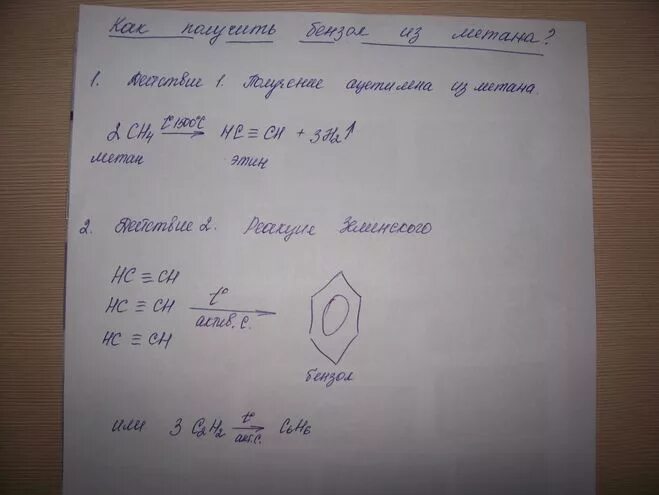 Как получить бензол из метана?
1. Действие 1. Получение ацетилена из метана.
2 CH₄ t°1500°C → HC ≡ CH + 3H₂↑
метан этин
2. Действие 2. Реакция Зелинского
HC ≡ CH
HC ≡ CH t° → актив. C.
HC ≡ CH
бензол
или 3 C₂H₂ t° → акт. C. C₆H₆